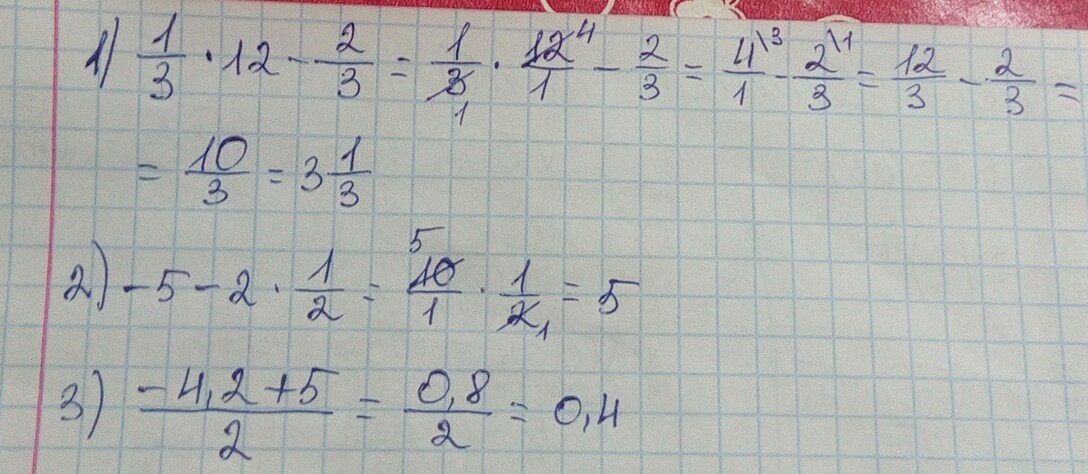 1) 1/3 · 12 - 2/3 = 1/3 1 · 12 4/1 - 2/3 = 4\3/1 - 2\1/3 = 12/3 - 2/3 =
= 10/3 = 3 1/3
2) -5 - 2 · 1/2 = 5 10/1 · 1/2 1 = 5
3) -4,2+5/2 = 0,8/2 = 0,4